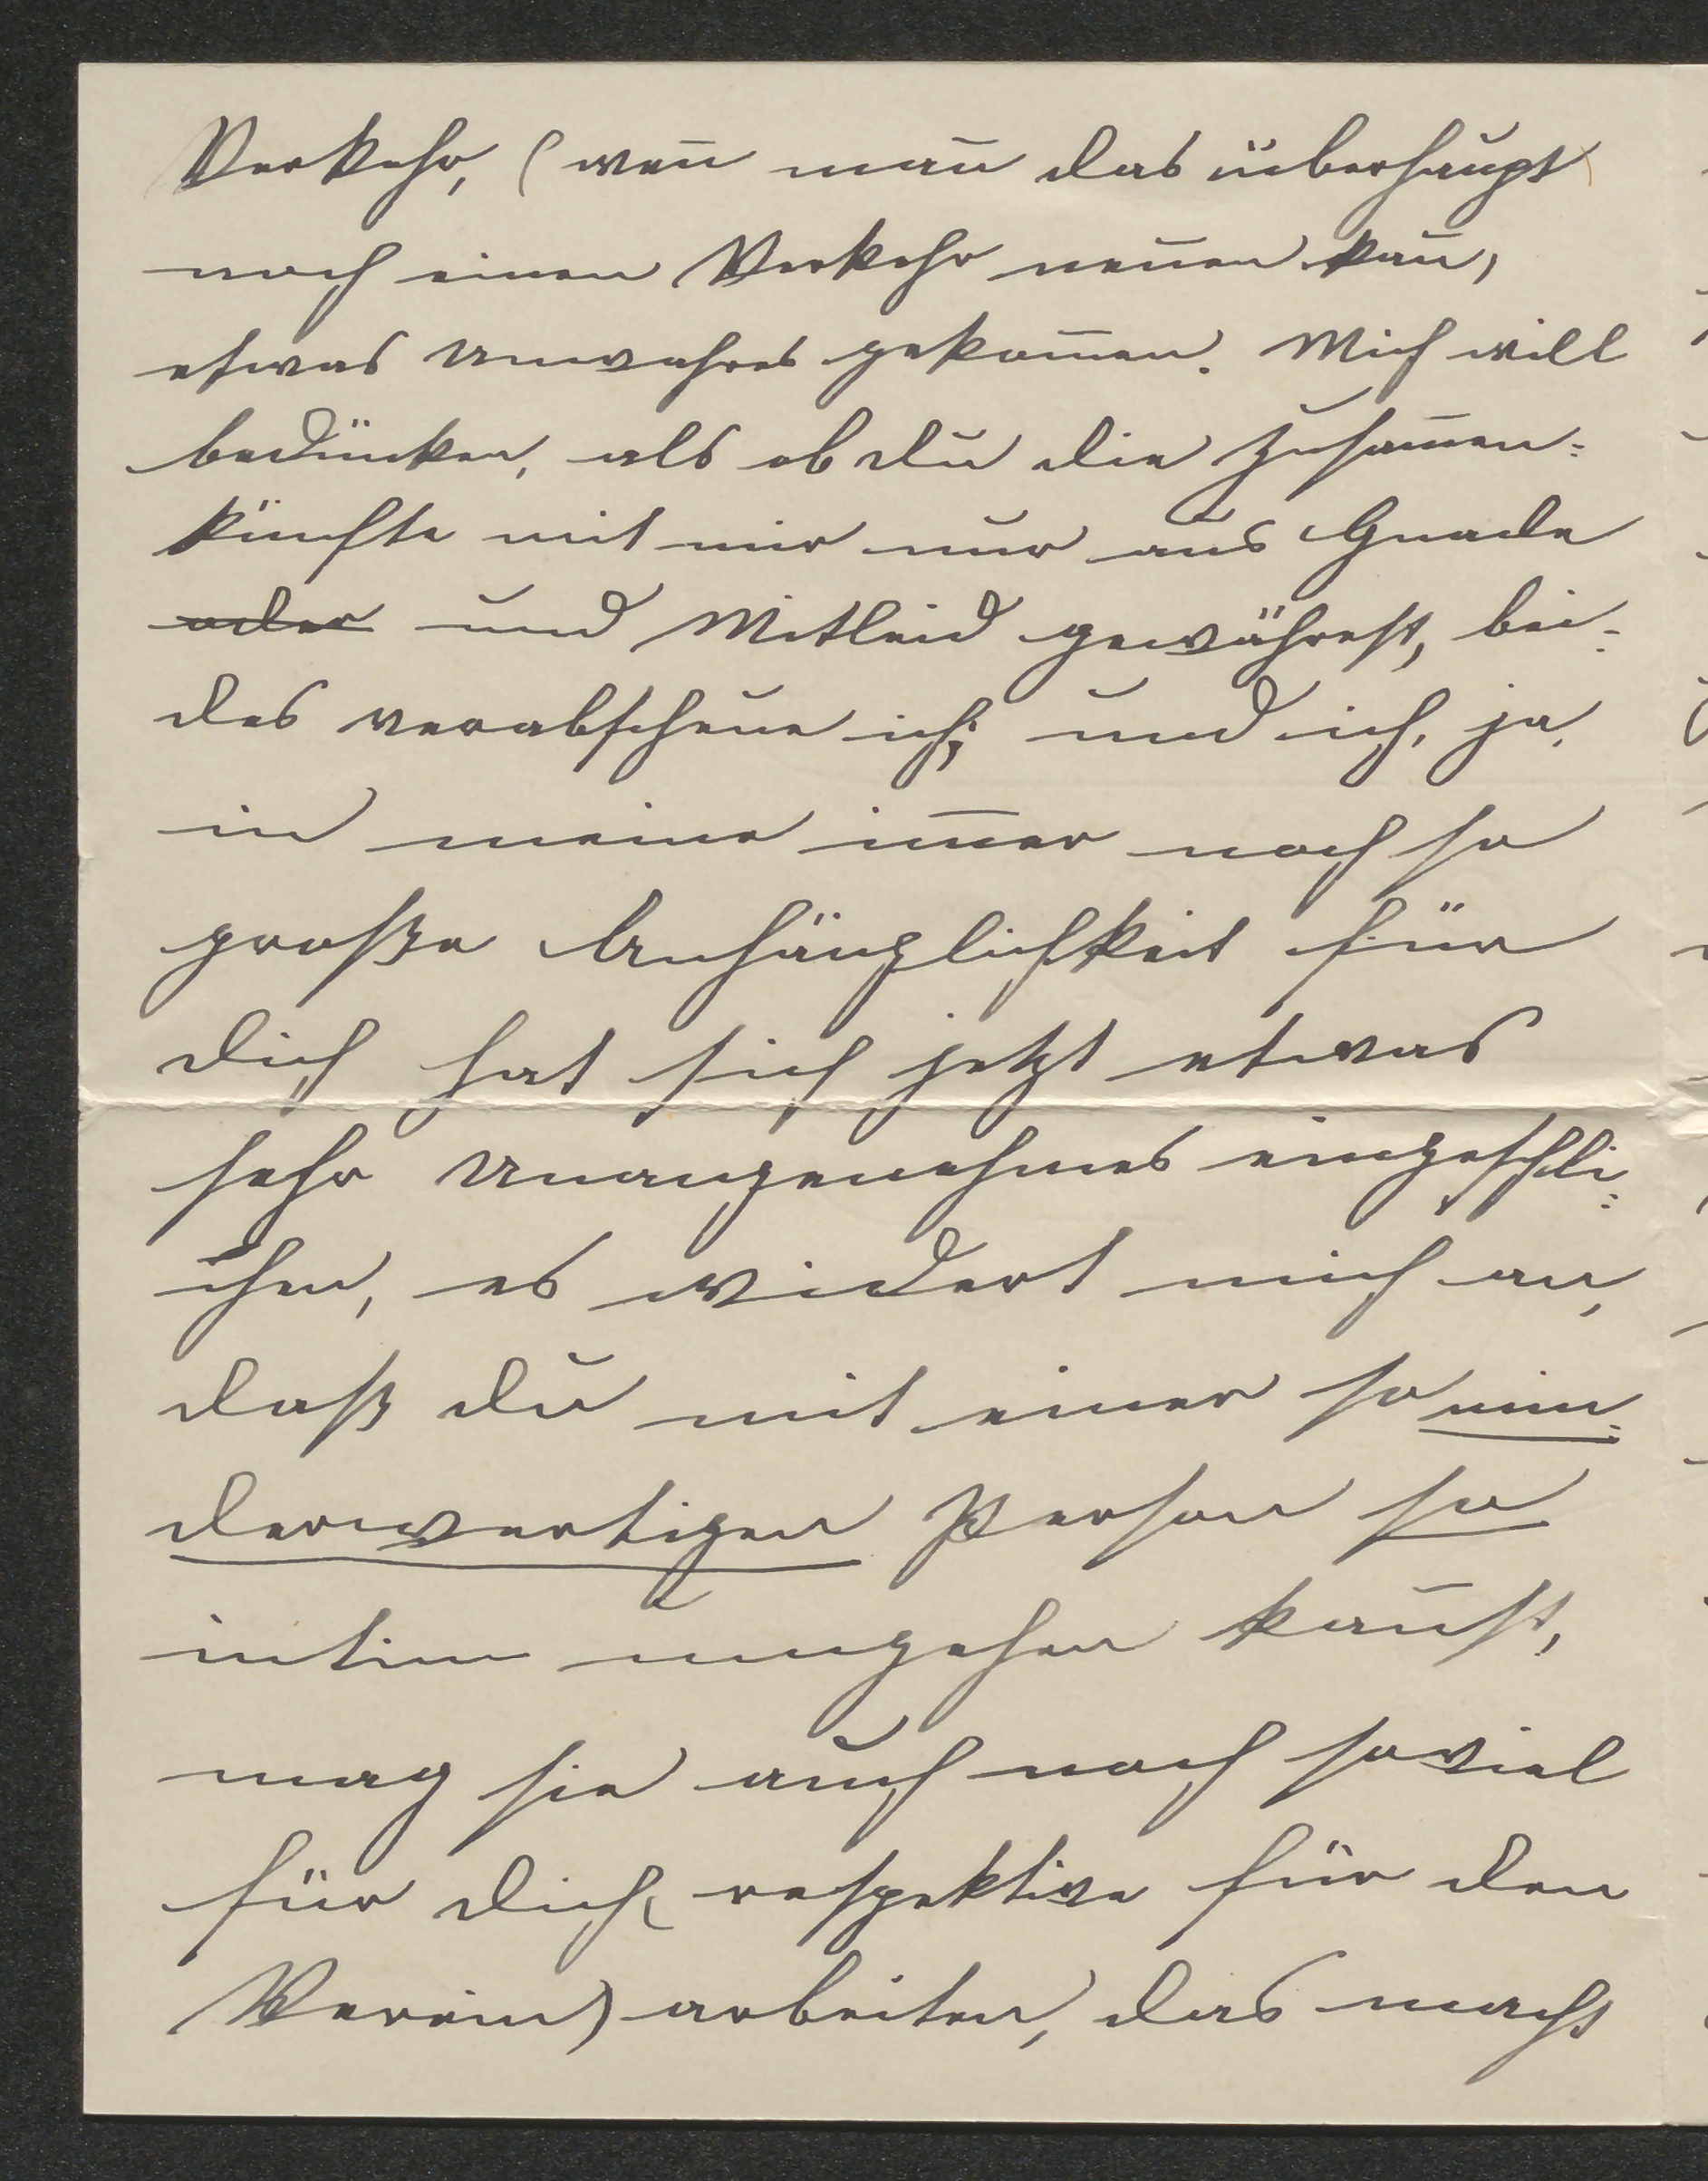 Verkehr, (wen̄ man̄ das überhaupt
noch einen Verkehr nen̄en kan̄,
etwas unwahres gekom̄en. Mich will
bedünken, als ob du die Zusam̄en=
künfte mit mir nur aus Gnade
oder und Mitleid gewährest, bei=
des verabscheue ich; und ich, ja,
in meine im̄er noch so
große Anhänglichkeit für
dich hat sich jetzt etwas
sehr unangenehmes eingeschli=
chen, es widert mich an,
daß du mit einer so min=
derwertigen Person so
intim umgehen kan̄st,
mag sie auch noch soviel
für dich (respektive für den
Verein) arbeiten, das macht